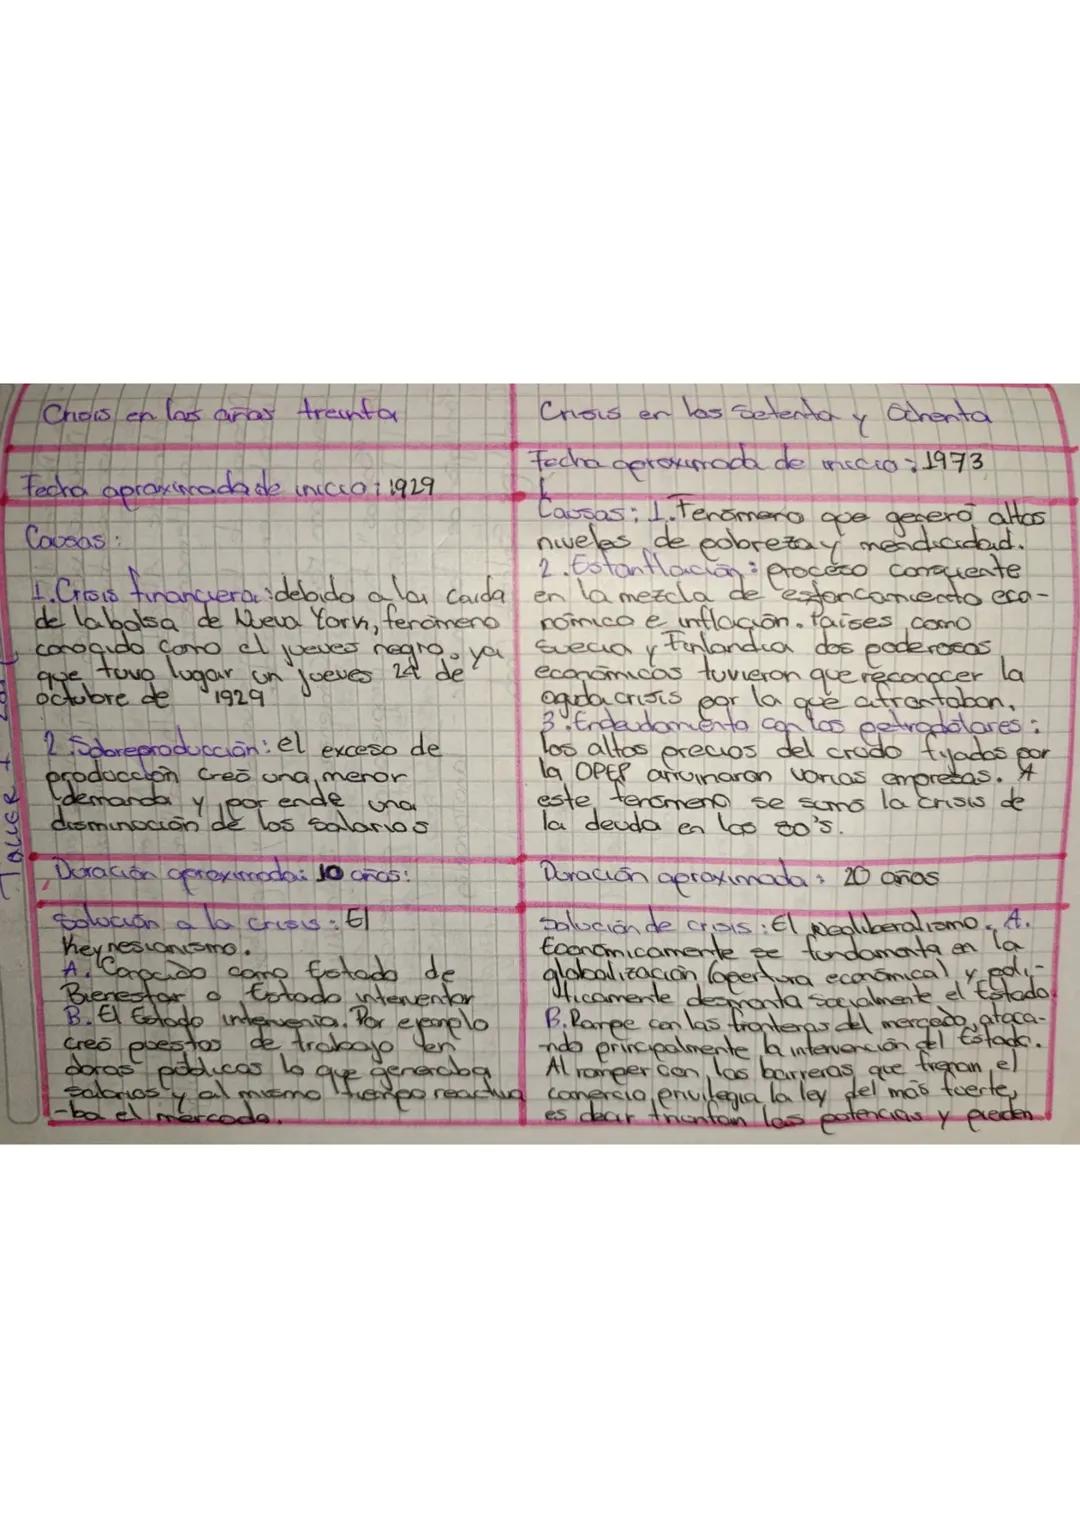 Crisis en los años treinta
Fecha aproximada de inicio: 1929
Causas:
1. Crisis financiera: debido a la caida
de la bolsa de Nueva York, fenómeno
conocido como el jueves negro, ya
que tuvo lugar un jueves 24 de
octubre de 1929
2. Sobreproducción: el exceso de
producción creó una menor
demanda y por ende una
disminución de los salarios
Duración aproximada: 10 años:
Solución a la crisis: El
Keynesianismo.
A. Conocido como Estado de
Bienestar o Estado interventor
B. El Estado intervenia. Por ejemplo
creó puestos de trabajo en
obras públicas lo que generaba
salarios y al mismo tiempo reactiva
-ba el mercado.
Crisis en los setenta y Ochenta
Fecha aproximada de inicio: 1973
Causas: 1. Fenómeno que generó altos
niveles de pobreza y mendicidad.
2. Estanflación: proceso consistente
en la mezcla de estancamiento eco-
nómico e inflación. Paises como
Suecia y Finlandia dos poderosos
económicos tuvieron que reconocer la
aguda crisis por la que afrontaban.
3. Endeudamiento con los petrodólares:
los altos precios del crudo fijados por
la OPEP arruinaron varias empresas. A
este fenómeno se sumó la crisis de
la deuda en los 80's.
Duración aproximada: 20 años
Solución de crisis: El Neoliberalismo. A.
Económicamente se fundamenta en la
globalización (apertura económica) y polí-
ticamente desmonta socialmente el Estado
B. Rompe con las fronteras del mercado, ataca-
ndo principalmente la intervención del Estado.
Al romper con las barreras que frenan el
comercio, privilegia la ley del más fuerte,
es decir triunfan las potencias y pierden
TALLER 1